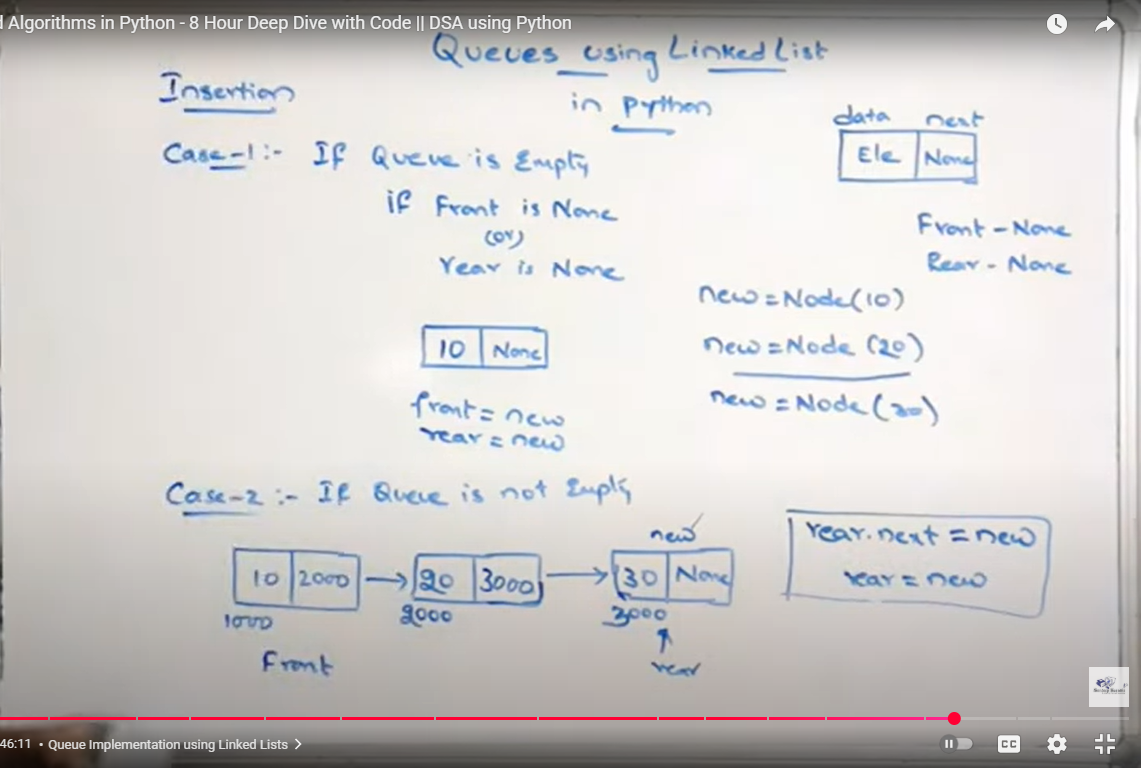 d Algorithms in Python - 8 Hour Deep Dive with Code || DSA using Python
Queues using Linked List
in python
Insertion
data next
Ele None
Case-1:- If Queue is Empty
if Front is None
(or)
rear is None
Front - None
Rear - None
new = Node(10)
new = Node (20)
new = Node (30)
10 None
front = new
rear = new
Case-2 :- If Queue is not Empty
new
10 2000 → 20 3000 → 30 None
1000 2000 3000
Front
rear
rear.next = new
rear = new
46:11 • Queue Implementation using Linked Lists >
CC